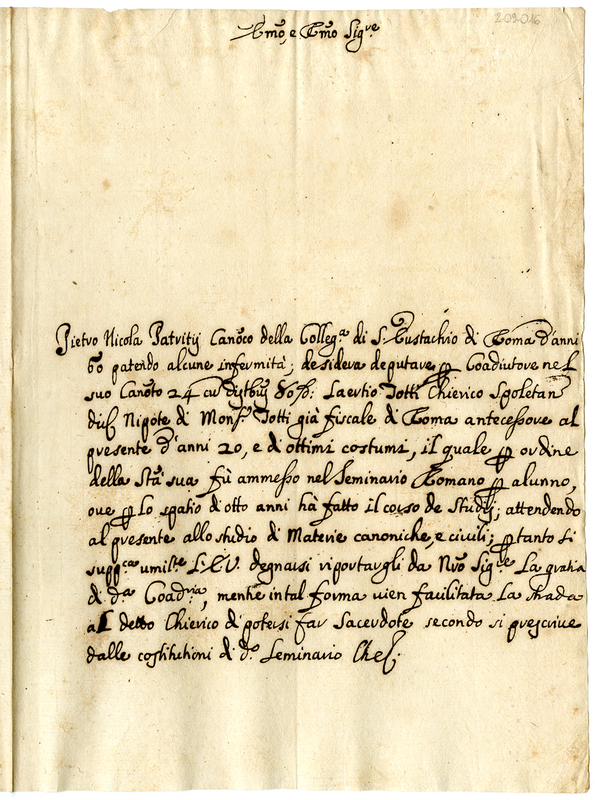 202016
Emo, e Rmo Sigre
Pietro Nicola Patritij Canoco della Collega di S. Eustachio di Roma d'anni
60 patendo alcune infermità; desidera deputare p Coadiutore nel
suo Canoto 24 cu Laertio Totti Chierico Spoletan
Nipote di Monsr Totti già fiscale di Roma antecessore al
presente d'anni 20, e di ottimi costumi, il quale p ordine
della Stà sua fù ammesso nel Seminario Romano p alunno,
oue p lo spatio d'otto anni hà fatto il corso de Studij; attendendo
al presente allo studio di Materie canoniche, e ciuili; ptanto si
suppca umilte l'E.V. degnarsi riportargli da Nro Sigre la gratia
di da Coadria, mentre in tal forma uien facilitata la strada
al detto Chierico di potersi far Sacerdote secondo si prescriue
dalle costitutioni di do Seminario Che